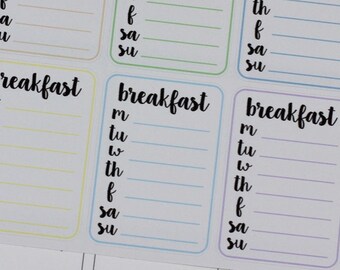 f
sa
su
f
sa
su
th
f
sa
su
breakfast
m
breakfast
m
tu
w
th
f
sa
su
breakfast
m
tu
w
th
f
sa
su